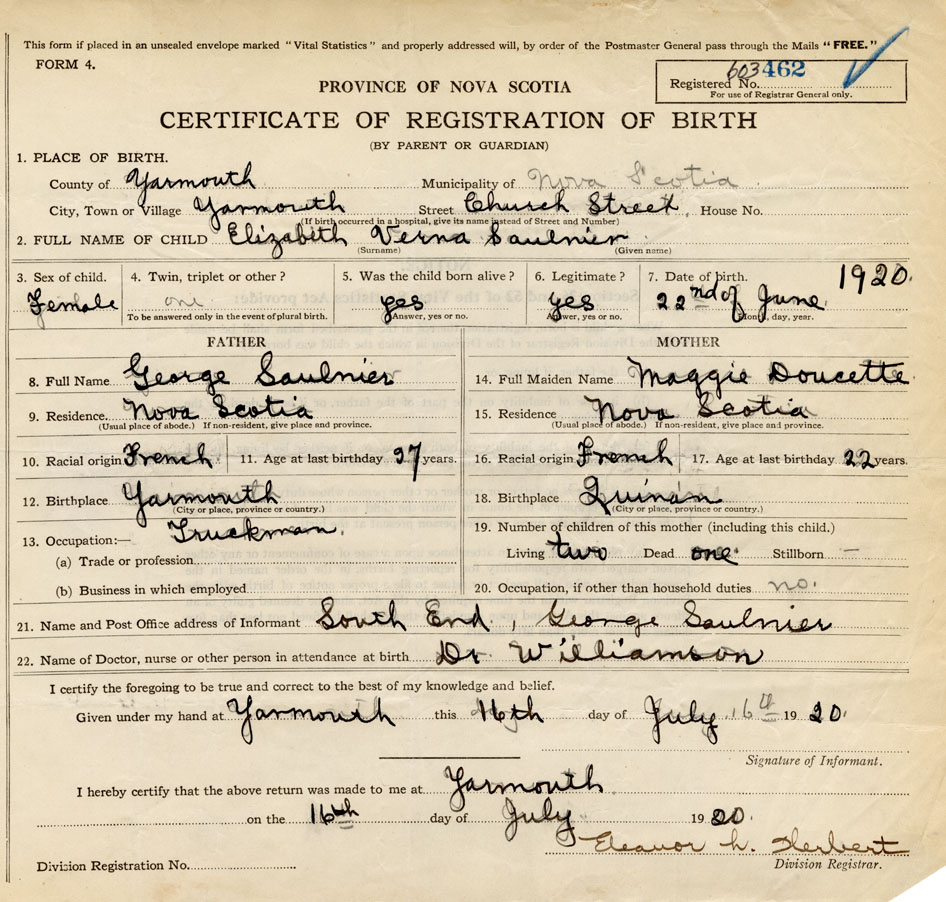 This form if placed in an unsealed envelope marked "Vital Statistics" and properly addressed will, by order of the Postmaster General pass through the Mails "FREE."
FORM 4.
603462
Registered No.
For use of Registrar General only.
PROVINCE OF NOVA SCOTIA
CERTIFICATE OF REGISTRATION OF BIRTH
(BY PARENT OR GUARDIAN)
1. PLACE OF BIRTH.
County of Yarmouth Municipality of Nova Scotia
City, Town or Village Yarmouth Street Church Street, House No.
(If birth occurred in a hospital, give its name instead of Street and Number)
2. FULL NAME OF CHILD Elizabeth Verna Saulnier
(Surname) (Given name)
3. Sex of child. 4. Twin, triplet or other? 5. Was the child born alive? 6. Legitimate? 7. Date of birth. 1920.
Female one yes yes 22nd of June
To be answered only in the event of plural birth. Answer, yes or no. Answer, yes or no. Month, day, year.
FATHER MOTHER
8. Full Name George Saulnier 14. Full Maiden Name Maggie Doucette
9. Residence. Nova Scotia 15. Residence Nova Scotia
(Usual place of abode.) If non-resident, give place and province. (Usual place of abode.) If non-resident, give place and province.
10. Racial origin French 11. Age at last birthday 27 years. 16. Racial origin French 17. Age at last birthday 22 years.
12. Birthplace Yarmouth 18. Birthplace Quinan
(City or place, province or country.) (City or place, province or country.)
13. Occupation:— Truckman. 19. Number of children of this mother (including this child.)
(a) Trade or profession Living two Dead one Stillborn —
(b) Business in which employed 20. Occupation, if other than household duties no.
21. Name and Post Office address of Informant South End, George Saulnier
22. Name of Doctor, nurse or other person in attendance at birth Dr Williamson
I certify the foregoing to be true and correct to the best of my knowledge and belief.
Given under my hand at Yarmouth this 16th day of July 16th 1920.
Signature of Informant.
I hereby certify that the above return was made to me at Yarmouth
on the 16th day of July 1920.
Eleanor L. Herbert
Division Registration No. Division Registrar.